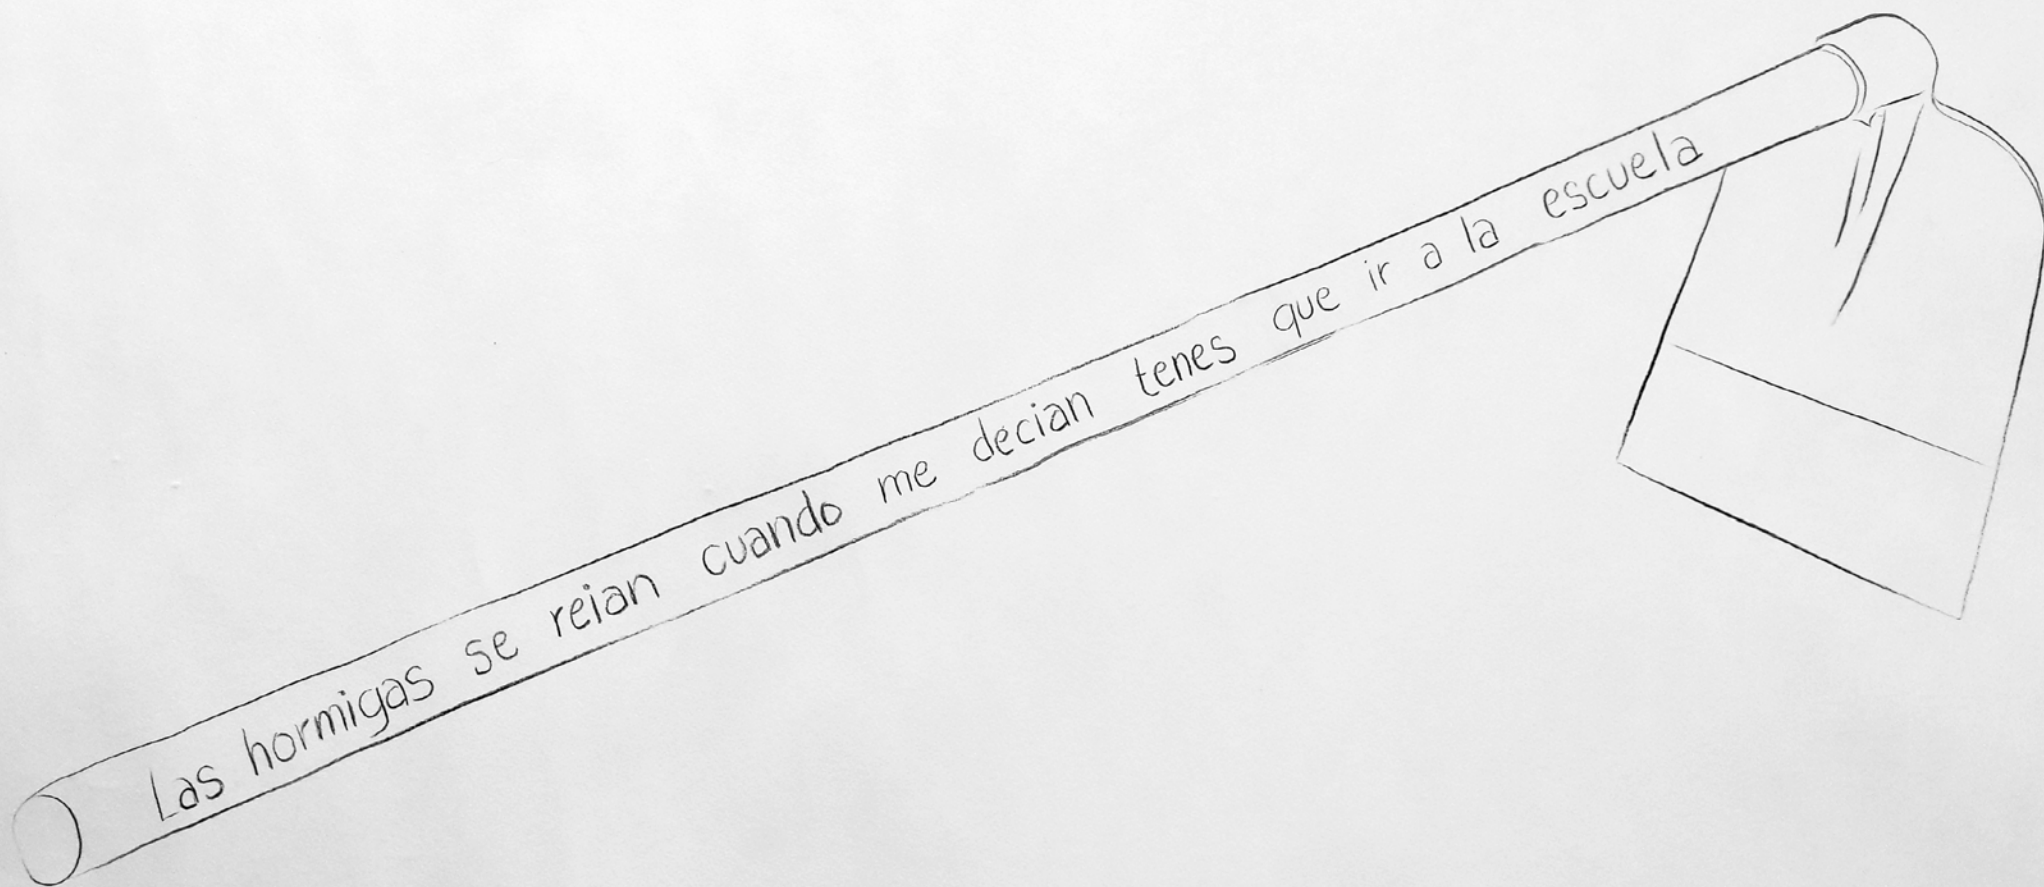 Las hormigas se reian cuando me decian tenes que ir a la escuela